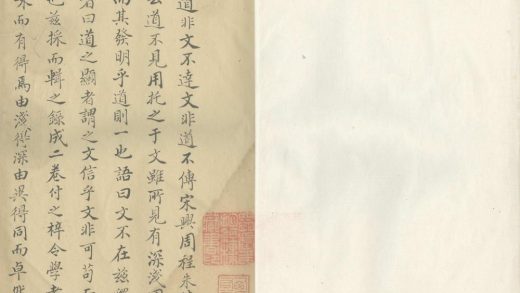 道非文不達文非道不傳宋興周程朱
公道不見用托之于文雖所見有深淺
而其發明乎道則一也語曰文不在茲
者曰道之顯者謂之文信乎文非可苟
也茲採而輯之錄成二卷付之梓令學者
味而有得焉由淺得深由異得同而卓